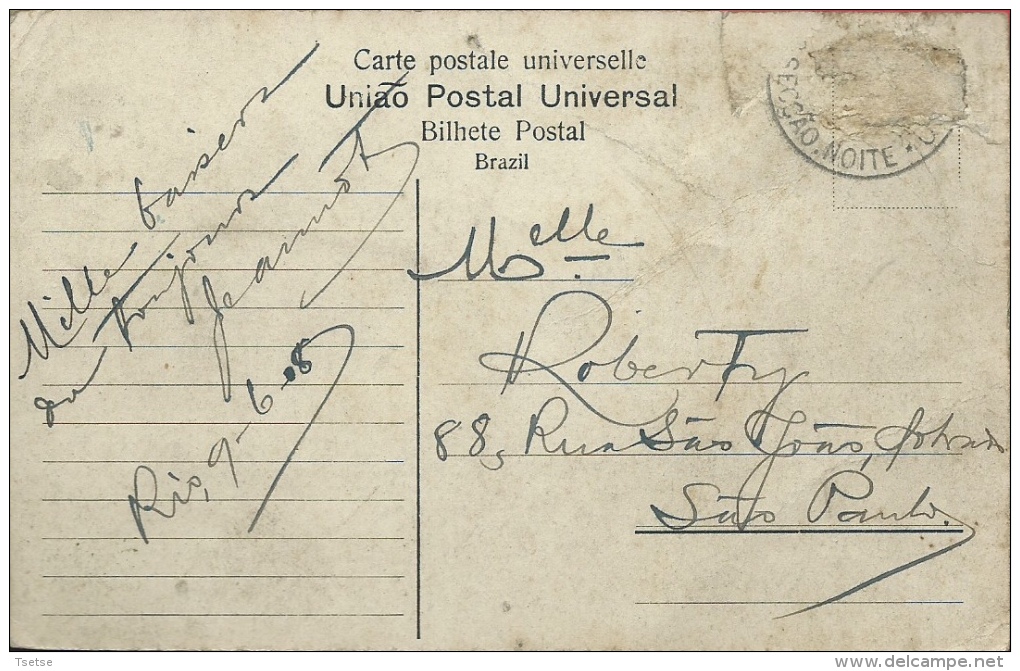 Carte postale universelle
União Postal Universal
Bilhete Postal
Brazil
SECÇÃO. NOITE
Mille baisers
du toujours
Jeannot
Rio, 9-6-08
Melle.
Roberty
88, Rua São João, sobrado
São Paulo.
Tsetse
www.delcampe.net